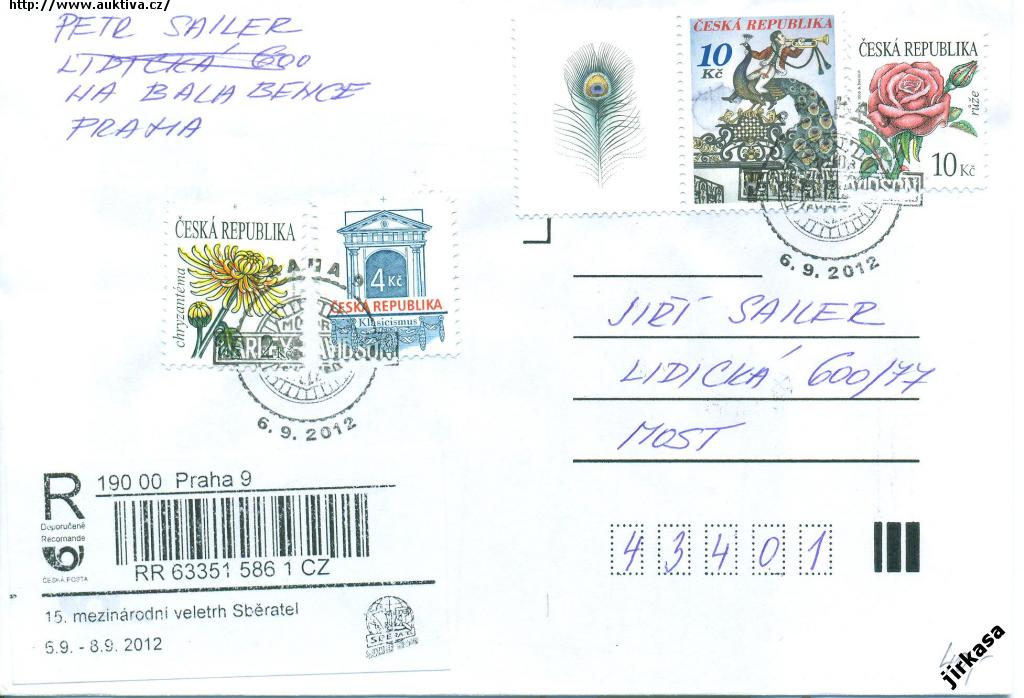 http://www.auktiva.cz/
PETR SAILER
LIDICKÁ 600
NA BALABENCE
PRAHA
ČESKÁ REPUBLIKA
10 Kč
ČESKÁ REPUBLIKA
růže
10 Kč
6. 9. 2012
ČESKÁ REPUBLIKA
chryzantéma
4 Kč
ČESKÁ REPUBLIKA
Klasicismus
PRAHA 9
HARLEY DAVIDSON
6. 9. 2012
JIŘÍ SAILER
LIDICKÁ 600/77
MOST
43401
R
Doporučeně
Recommandé
ČESKÁ POŠTA
190 00 Praha 9
RR 63351 586 1 CZ
15. mezinárodní veletrh Sběratel
6.9. - 8.9. 2012
SBĚRATEL
jirkasa